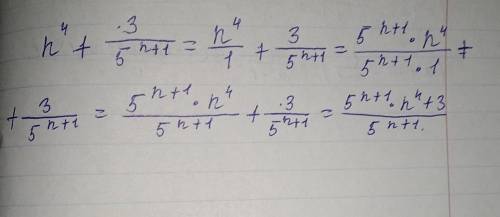 n⁴ + 3/5ⁿ⁺¹ = n⁴/1 + 3/5ⁿ⁺¹ = (5ⁿ⁺¹ · n⁴)/(5ⁿ⁺¹ · 1) +
+ 3/5ⁿ⁺¹ = (5ⁿ⁺¹ · n⁴)/5ⁿ⁺¹ + 3/5ⁿ⁺¹ = (5ⁿ⁺¹ · n⁴ + 3)/5ⁿ⁺¹.